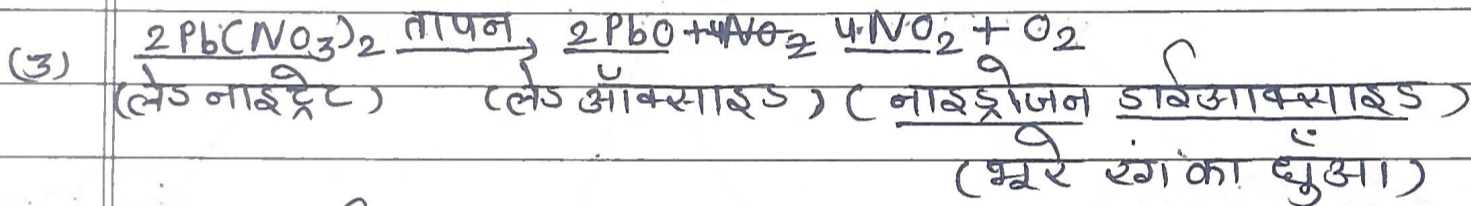 (3) 2Pb(NO3)2 तापन, 2PbO + 4NO2 4NO2 + O2
(लेड नाइट्रेट) (लेड ऑक्साइड) (नाइट्रोजन डाईआक्साइड)
(भूरे रंग का धुँआ)